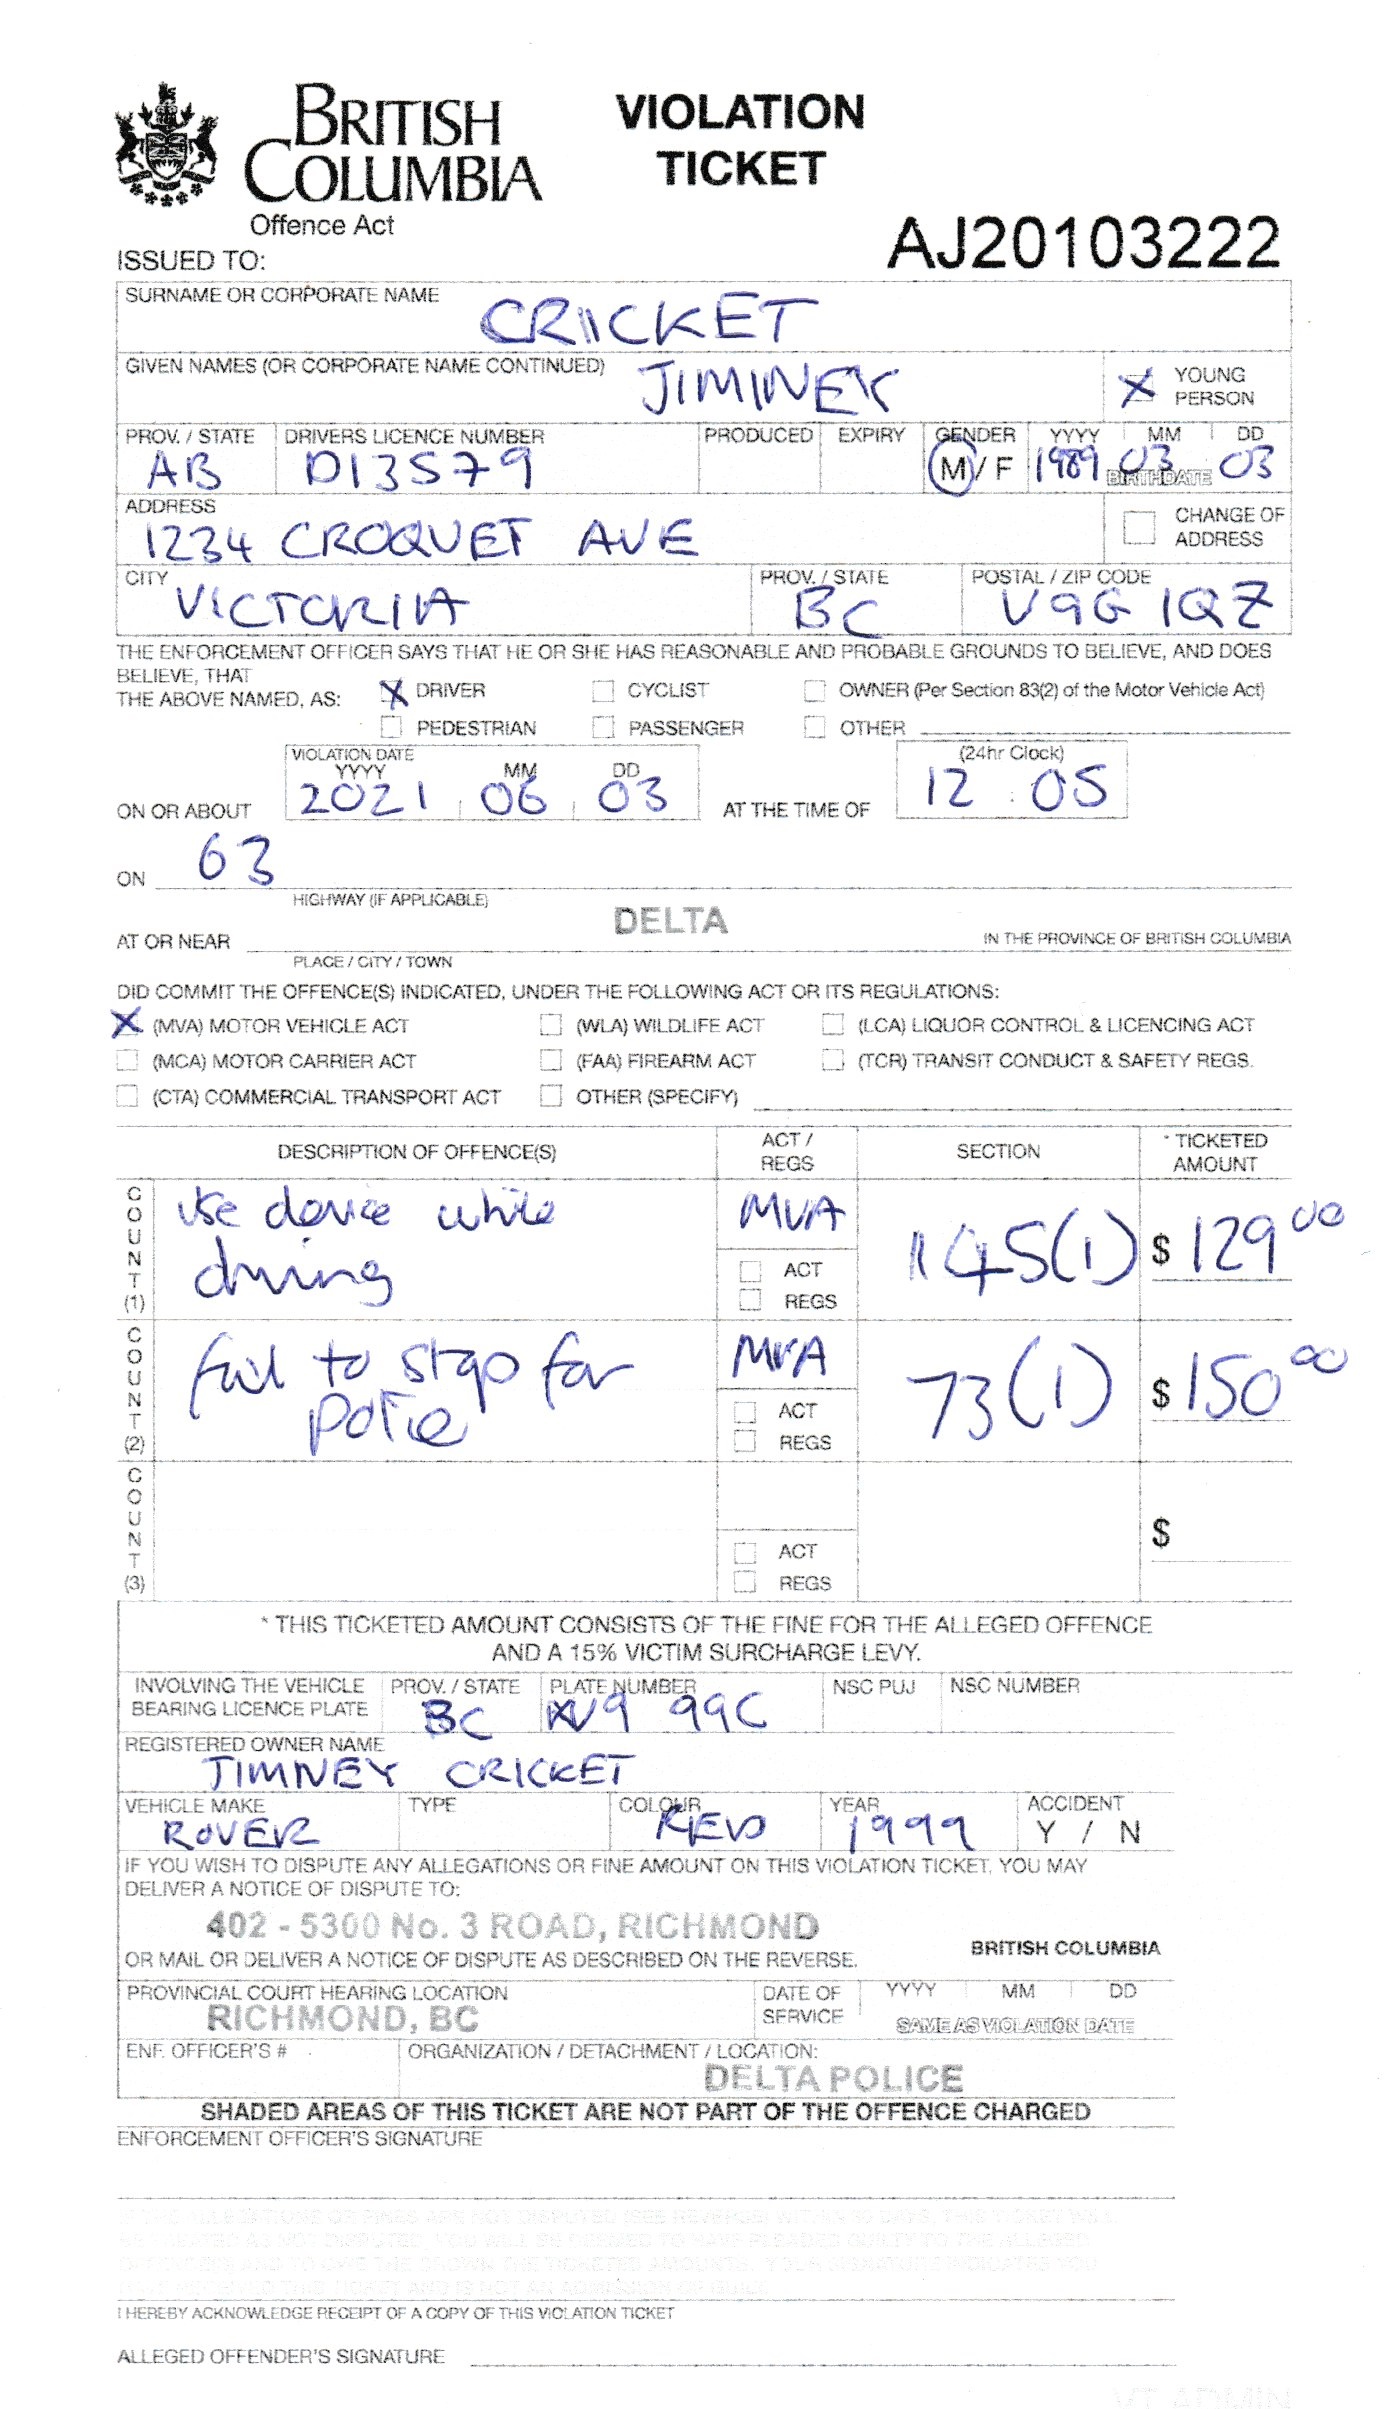 BRITISH COLUMBIA
Offence Act
VIOLATION TICKET
AJ20103222
ISSUED TO:
SURNAME OR CORPORATE NAME
CRICKET
GIVEN NAMES (OR CORPORATE NAME CONTINUED)
JIMINEY
YOUNG PERSON
PROV. / STATE DRIVERS LICENCE NUMBER PRODUCED EXPIRY GENDER YYYY MM DD
AB D13579 M / F 1989 03 03
BIRTHDATE
ADDRESS
1234 CROQUET AVE
CHANGE OF ADDRESS
CITY PROV. / STATE POSTAL / ZIP CODE
VICTORIA BC V9G 1QZ
THE ENFORCEMENT OFFICER SAYS THAT HE OR SHE HAS REASONABLE AND PROBABLE GROUNDS TO BELIEVE, AND DOES
BELIEVE, THAT
THE ABOVE NAMED, AS: X DRIVER CYCLIST OWNER (Per Section 83(2) of the Motor Vehicle Act)
PEDESTRIAN PASSENGER OTHER
VIOLATION DATE (24hr Clock)
YYYY MM DD
ON OR ABOUT 2021 06 03 AT THE TIME OF 12 : 05
ON 63
HIGHWAY (IF APPLICABLE)
AT OR NEAR DELTA IN THE PROVINCE OF BRITISH COLUMBIA
PLACE / CITY / TOWN
DID COMMIT THE OFFENCE(S) INDICATED, UNDER THE FOLLOWING ACT OR ITS REGULATIONS:
X (MVA) MOTOR VEHICLE ACT (WLA) WILDLIFE ACT (LCA) LIQUOR CONTROL & LICENCING ACT
(MCA) MOTOR CARRIER ACT (FAA) FIREARM ACT (TCR) TRANSIT CONDUCT & SAFETY REGS.
(CTA) COMMERCIAL TRANSPORT ACT OTHER (SPECIFY)
DESCRIPTION OF OFFENCE(S) ACT / REGS SECTION * TICKETED AMOUNT
COUNT (1)
use device while
driving
MVA
ACT
REGS
145(1) $ 129 00
COUNT (2)
fail to stop for
police
MVA
ACT
REGS
73(1) $ 150 00
COUNT (3)
ACT
REGS
$
* THIS TICKETED AMOUNT CONSISTS OF THE FINE FOR THE ALLEGED OFFENCE
AND A 15% VICTIM SURCHARGE LEVY.
INVOLVING THE VEHICLE BEARING LICENCE PLATE PROV. / STATE PLATE NUMBER NSC PUJ NSC NUMBER
BC 99C
REGISTERED OWNER NAME
JIMNEY CRICKET
VEHICLE MAKE TYPE COLOUR YEAR ACCIDENT
ROVER RED 1999 Y / N
IF YOU WISH TO DISPUTE ANY ALLEGATIONS OR FINE AMOUNT ON THIS VIOLATION TICKET, YOU MAY
DELIVER A NOTICE OF DISPUTE TO:
402 - 5300 No. 3 ROAD, RICHMOND
BRITISH COLUMBIA
OR MAIL OR DELIVER A NOTICE OF DISPUTE AS DESCRIBED ON THE REVERSE.
PROVINCIAL COURT HEARING LOCATION DATE OF SERVICE YYYY MM DD
RICHMOND, BC SAME AS VIOLATION DATE
ENF. OFFICER'S # ORGANIZATION / DETACHMENT / LOCATION:
DELTA POLICE
SHADED AREAS OF THIS TICKET ARE NOT PART OF THE OFFENCE CHARGED
ENFORCEMENT OFFICER'S SIGNATURE
I HEREBY ACKNOWLEDGE RECEIPT OF A COPY OF THIS VIOLATION TICKET
ALLEGED OFFENDER'S SIGNATURE
VT ADMIN